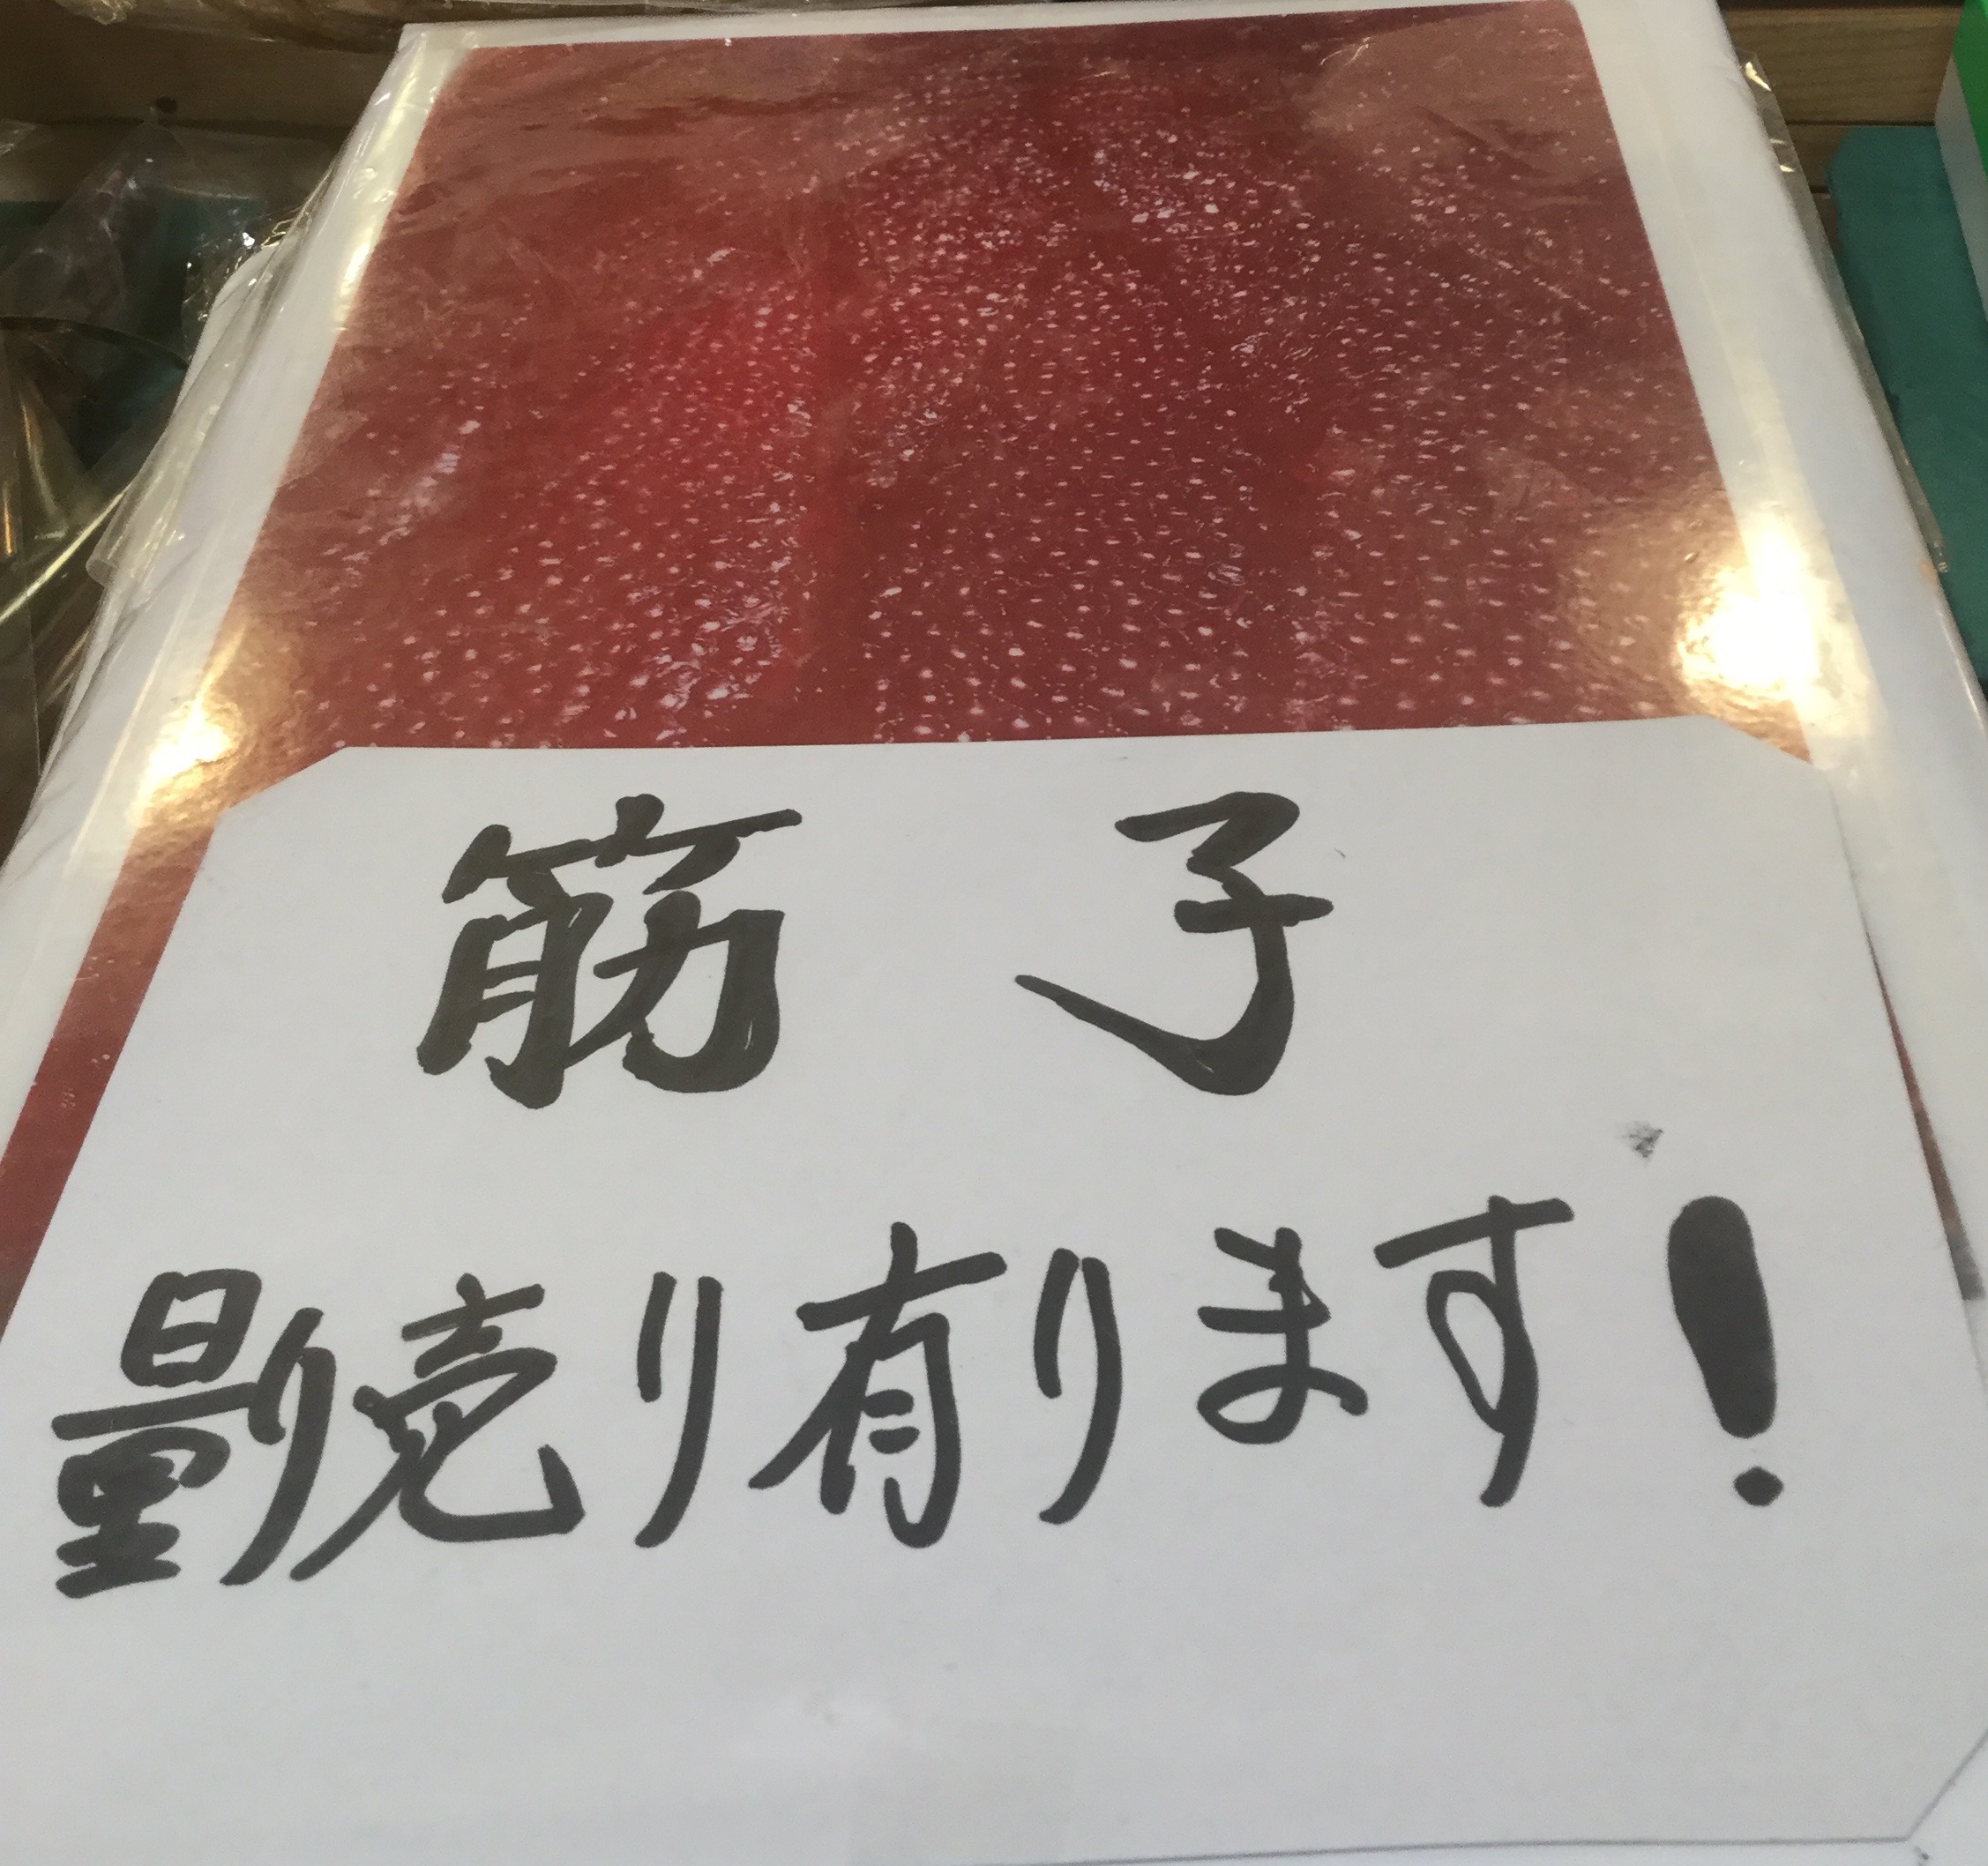 筋子
量り売り有ります!